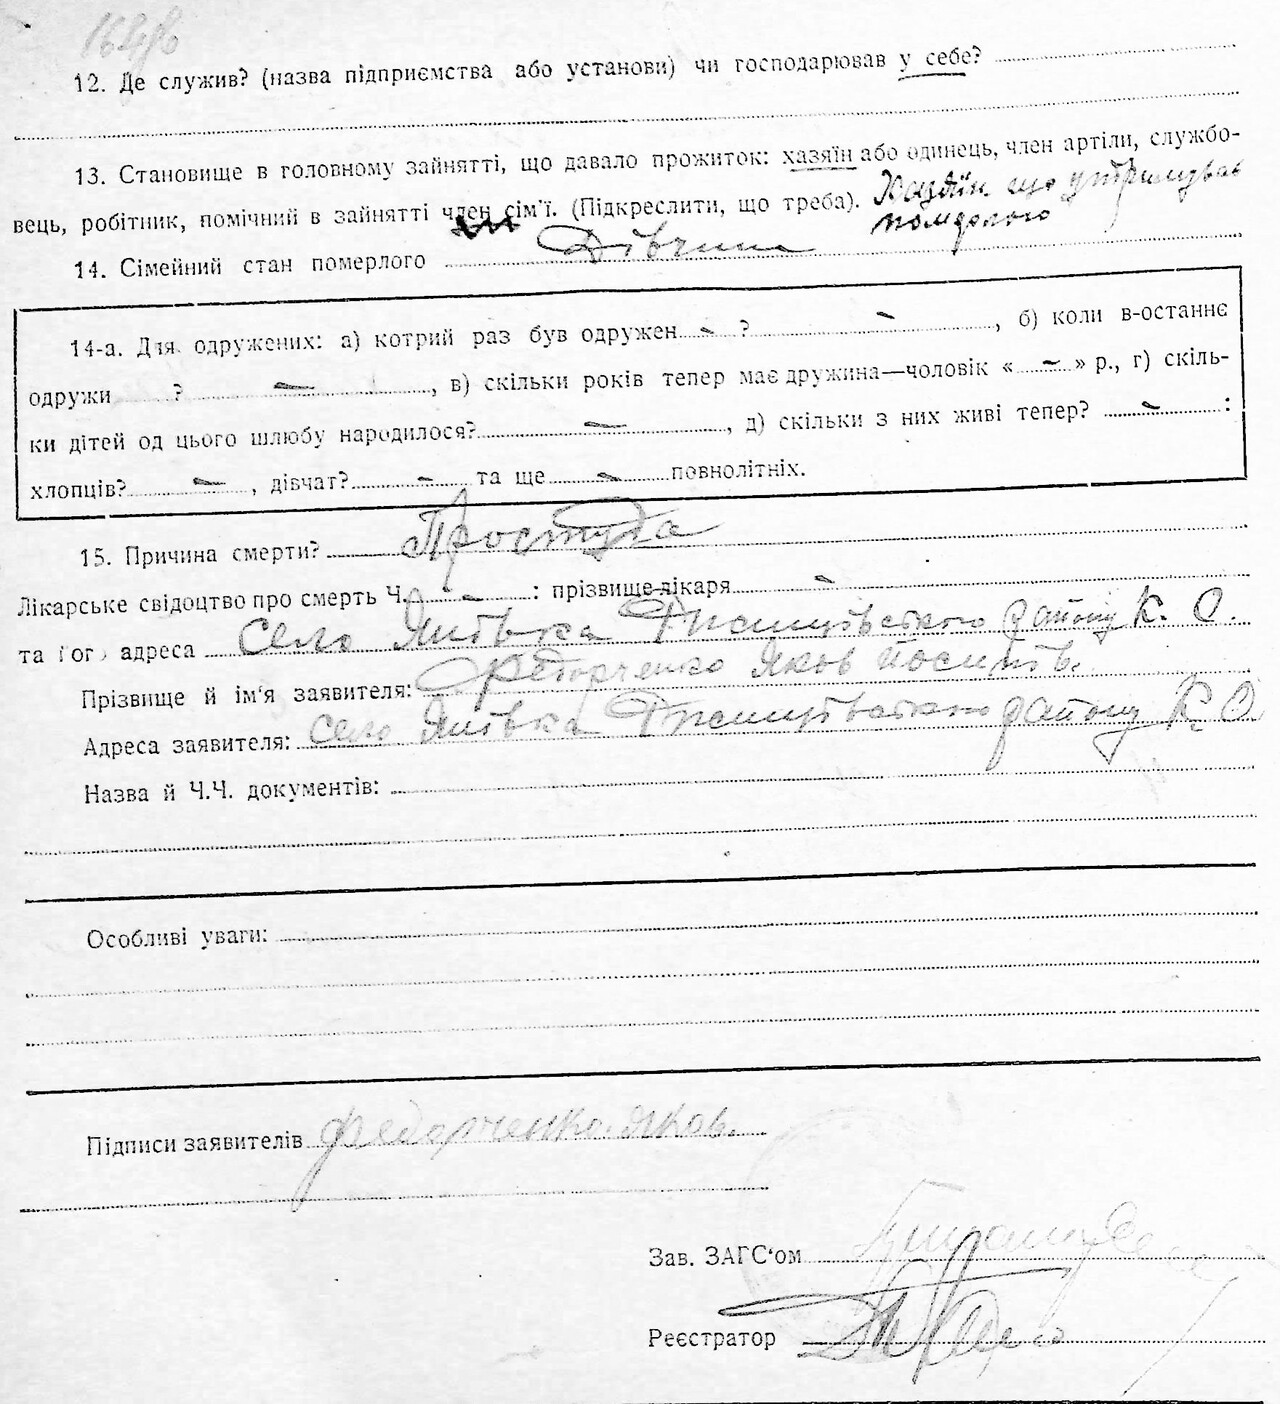 12. Де служив? (назва підприємства або установи) чи господарював у себе?
13. Становище в головному зайнятті, що давало прожиток: хазяїн або одинець, член артіли, службо-
вець, робітник, помічний в зайнятті член сім'ї. (Підкреслити, що треба). Хазяїн що утримував
померлого
14. Сімейний стан померлого Дівчина
14-а. Для одружених: а) котрий раз був одружен - ? -, б) коли в-останнє
одружи ? -, в) скільки років тепер має дружина—чоловік « - » р., г) скіль-
ки дітей од цього шлюбу народилося? -, д) скільки з них живі тепер? - :
хлопців? -, дівчат? - та ще - повнолітніх.
15. Причина смерти? Простуда
Лікарське свідоцтво про смерть Ч. - : прізвище лікаря -
та його адреса село Янівка району К. О.
Прізвище й ім'я заявителя: Федорченко Яков Йосипів.
Адреса заявителя: село Янівка району К. О
Назва й Ч.Ч. документів:
Особливі уваги:
Підписи заявителів Федорченко Яков.
Зав. ЗАГС'ом
Реєстратор